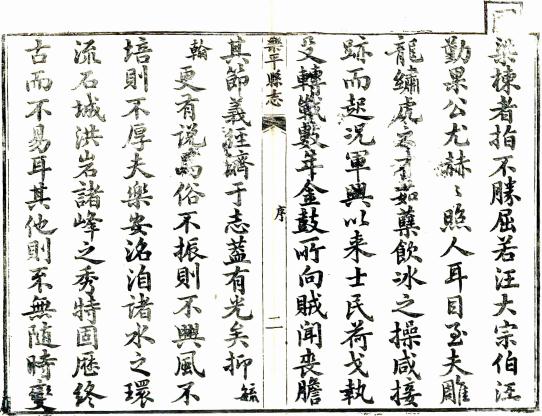 梁棟者指不勝屈若汪大宗伯汪
勤果公尤赫〻照人耳目至夫雕
龍繡虎之有茹蘗飲冰之操咸接
跡而起況軍興以来士民荷戈執
殳轉戰數年金鼓所向賊聞喪膽
樂平縣志
序
二
其節義經濟于志蓋有光矣抑毓
翰更有説焉俗不振則不興風不
培則不厚夫樂安洺泊諸水之環
流石城洪岩諸峰之秀特固歷終
古而不易耳其他則不無隨時變